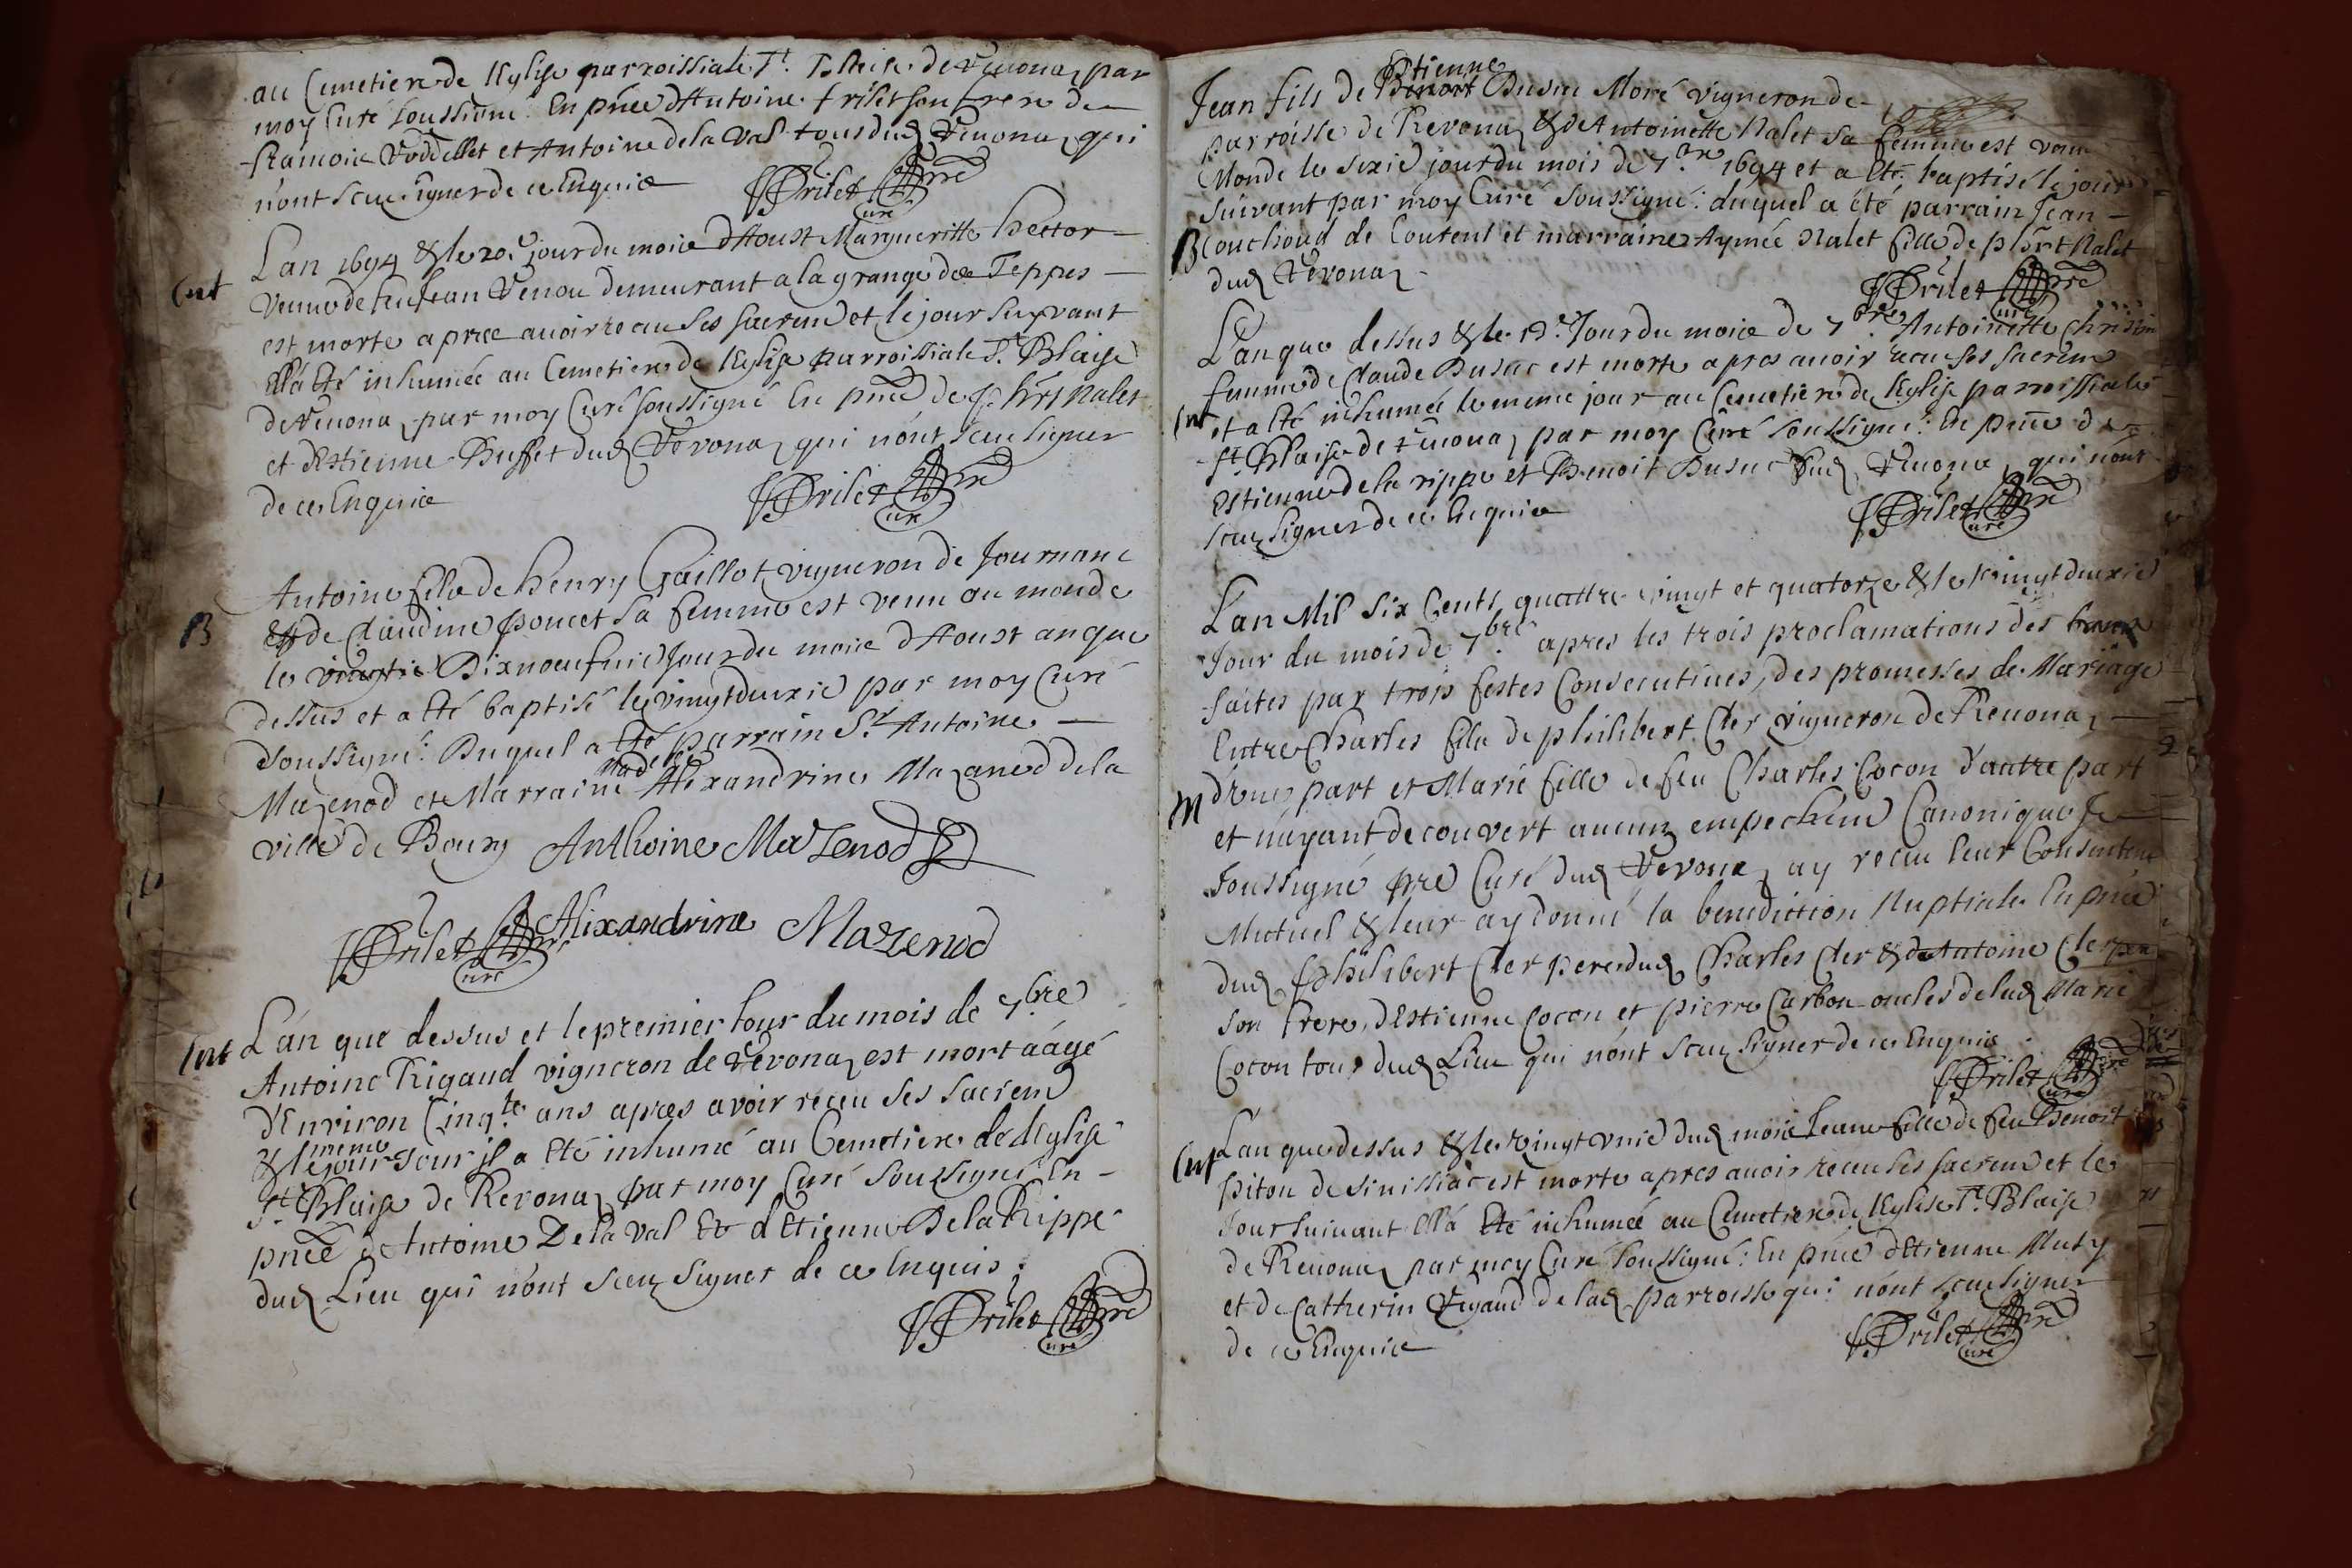 au Cimetiere de l'Eglise parroissiale St. Blaise de Reuonaz par
moy Curé soussigné En pñce d'Antoine frilet son frere de
et Antoine de la Val tous dud Reuonaz qui
n'ont sceu signer de ce Enquis
Frilet pre
Curé
Ent
L'an 1694 & le 20e jour du moie d'Aoust Margueritte hector
veuue de feu Jean Venou demeurant a la grange des Teppes
est morte apree auoir receu ses sacremd et le jour suyvant
Ell'a Eté inhumée au Cemetiere de l'Eglise parroissiale St. Blaise
de Reuonaz par moy Curé soussigné En pñce de phbrt Nalet
et d'Estienne Buffet dud Revonaz qui n'ont sceu signer
de ce Enquie
Frilet pre
Curé
B
Antoine fils de henry Gaillot vigneron de Journanc
& de Claudine poncet sa femme est venu au monde
le vingtie Dixnoeufuie Jour du moie d'Aoust an que
dessus et a Eté baptisé le vingtdeuxie par moy Curé
soussigné: Duquel a Eté parrain Sr. Antoine
Mazenod et Marraine Madelle Alexandrine Mazened de la
ville de Bourg Anthoine Mazenod
Alixandrine Mazenod
Frilet pre
Curé
Ent L'an que dessus et le premier Jour du mois de 7bre
Antoine Rigaud vigneron de Revonaz est mort aágé
d'Environ Cinqte. ans apres avoir receu ses sacrem
& le jour même Jour il a Eté inhumé au Cemetiere de l'Eglise
St. Blaise de Revonaz par moy Curé Soussigné En
pnce d'Antoine De la Val Et d'Etienne De la Rippe
dud Lieu qui n'ont sceu signer de ce Enquis:
Frilet pre
Curé
Jean fils de Benoit Etienne Busuc Moré vigneron de
parroisse de Revonaz & de Antoinette Nalet sa femme est venu
Monde le sixie jour du mois de 7bre 1694 et a Eté baptisé le jour
suivant par moy Curé soussigné: duquel a été parrain Jean
B Couchoud de et marraine Aymée Nalet fille de phbrt Nalet
dud Revonaz
Frilet pre
Curé
L'an que dessus & le Jour du moie de 7bre Antoinette
femme de Claude Busuc est morte apres auoir receu ses sacrem
Ent et a Eté inhumée le meme jour au Cemetiere de l'Eglise parroissiale
St. Blaise de Reuonaz par moy Curé soussigné: En pnce de
Estienne de la rippe et Benoit Busuc dud Reuonaz qui n'ont
sceu signer de ce Enquie
Frilet pre
Curé
L'an Mil six Cents quattre vingt et quatorze & le vingtdeuxie
Jour du mois de 7bre apres les trois proclamations des bans
faites par trois festes Consecutiues, des promesses de Mariage
Entre Charles fils de philibert Cler vigneron de Reuonaz
M d'une part et Marie fille de feu Charles Cocon d'autre part
et n'ayant decouvert aucun empechemt Canonique Je
soussigné pre Curé dud Revonaz ay receu leur Consentemt
Mutuel & leur ay donné la benediction Nuptiale En pnce
dud philibert Cler pere dud Charles Cler & de Antoine Cler
son frere, d'Estienne Cocon et pierre Carbon oncles de lad Marie
Cocon tous dud Lieu qui n'ont sceu signer de ce Enquis
Frilet pre
Curé
Ent L'an que dessus & le vingt vnie dud moie Jeanne fille de feu Benoit
piton de sinissiac est morte apres auoir receu ses sacremd et le
Jour suiuant Ell'a Eté inhumée au Cemetiere de l'Eglise St. Blaise
de Reuonaz par moy Curé soussigné: En pnce d'Etienne
et de Catherin Rigaud de lad parroisse qui n'ont sceu signer
de ce Enquie
Frilet pre
Curé